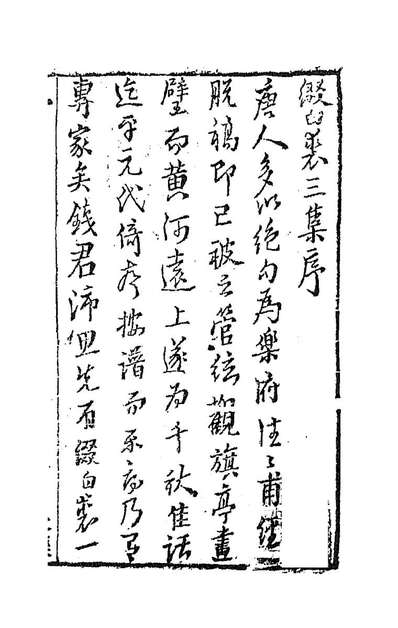 綴白裘三集序
唐人多以絶句為樂府往〻甫經
脱稿即已被之管絃觀旗亭畫
壁而黄河遠上遂為千秋佳話
迄乎元代倚聲按譜而樂府乃有
專家矣錢君沛思先有綴白裘一